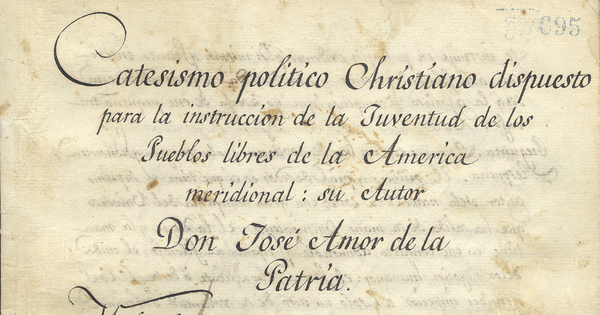 C95
Catesismo politico Christiano dispuesto
para la instruccion de la Juventud de los
Pueblos libres de la America
meridional: su Autor
Don José Amor de la
Patria.